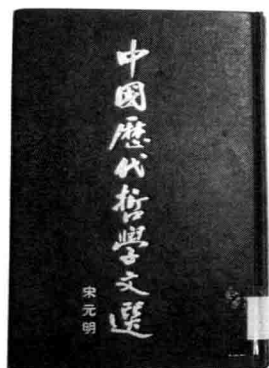 中國歷代哲學文選
宋元明